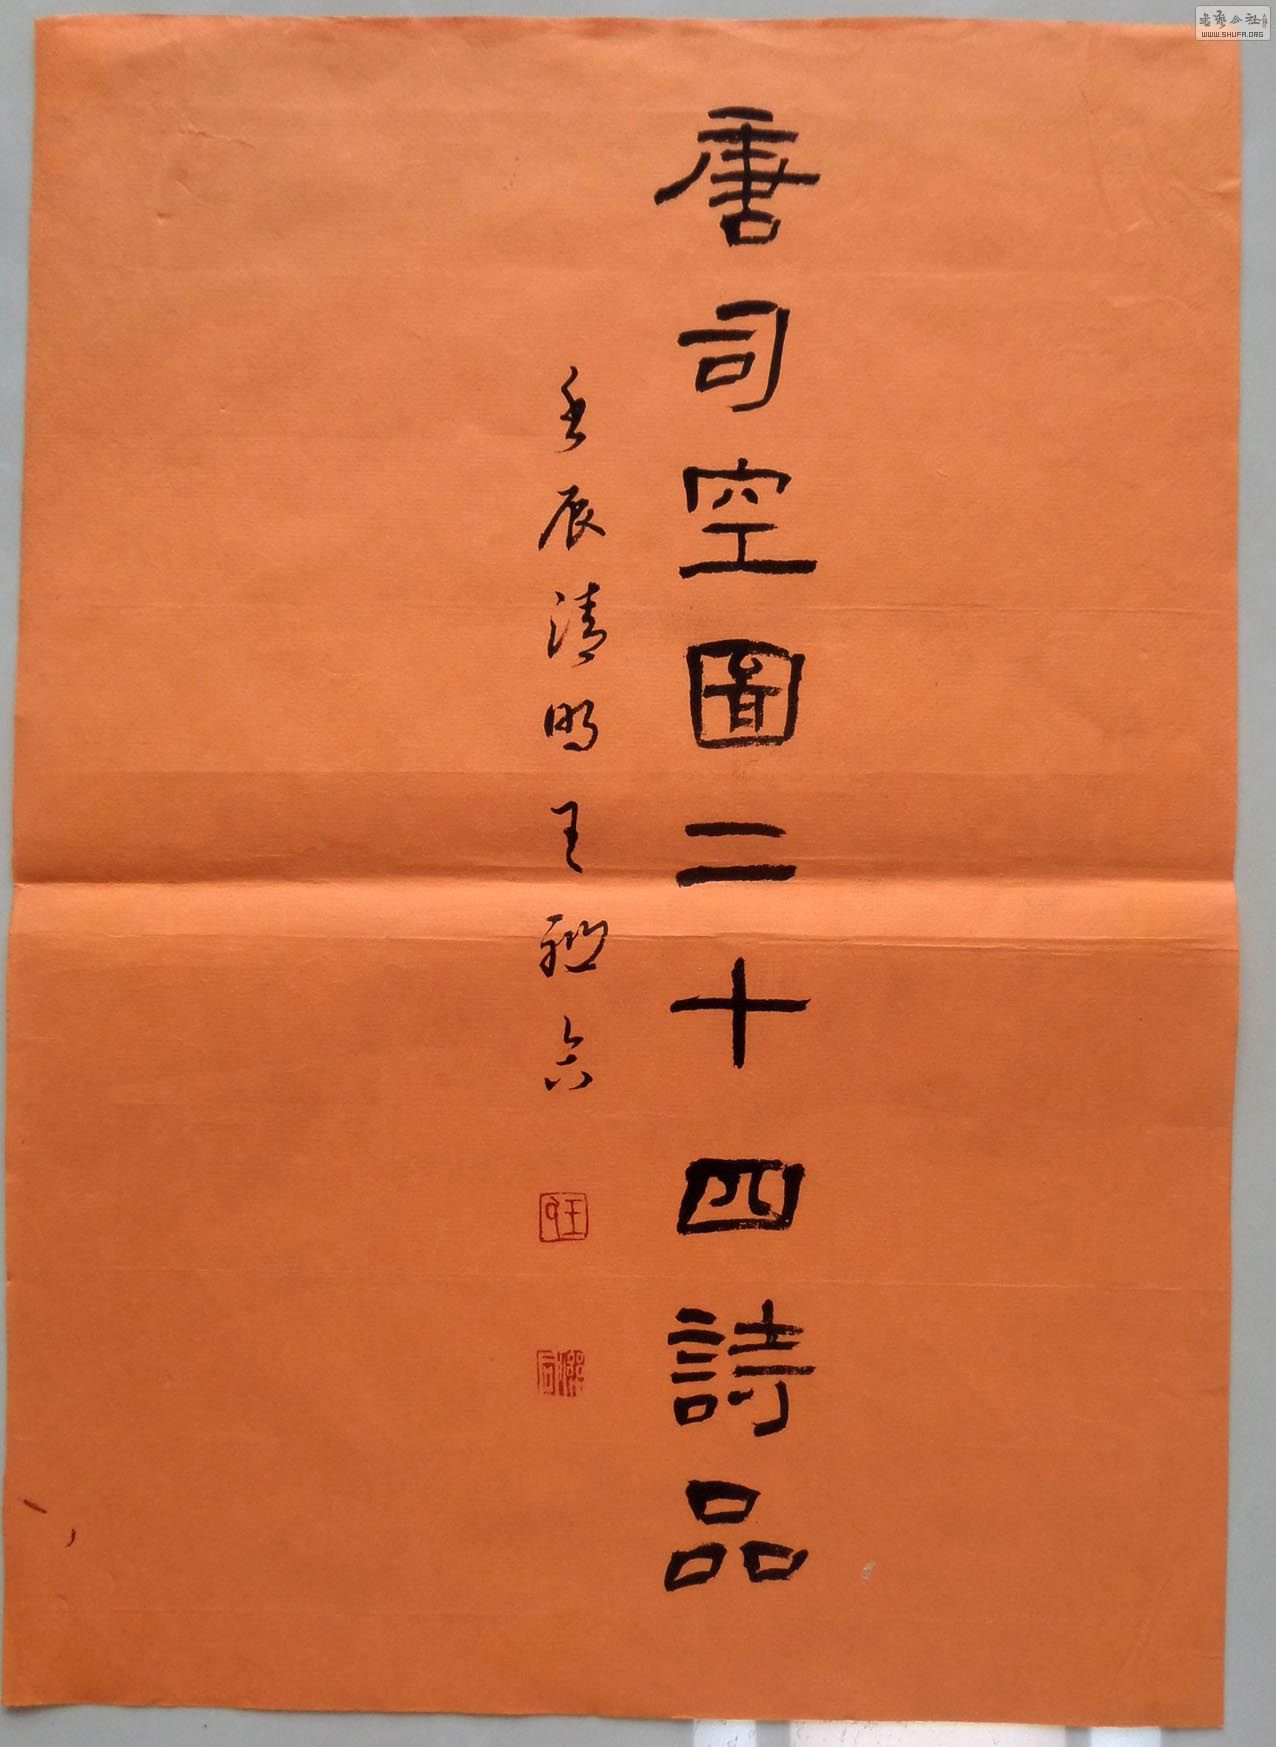 唐司空圖二十四詩品
壬辰清明王
书艺公社
WWW.SHUFA.ORG